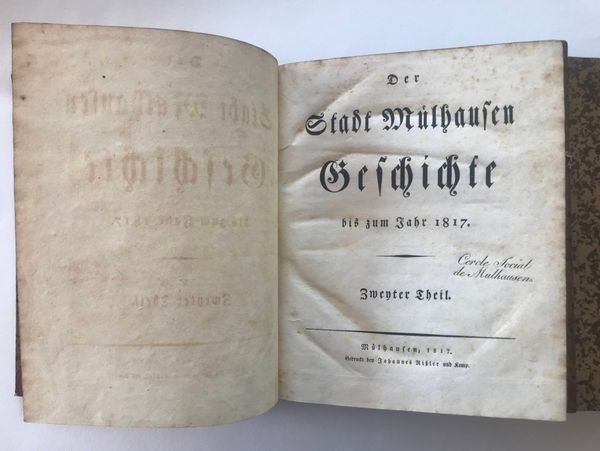 Der
Stadt Mülhausen
Geschichte
bis zum Jahr 1817.
Cercle Social
de Mulhausen
Zweyter Theil.
Mülhausen, 1817.
Gedruckt bey Johannes Rißler und Komp.